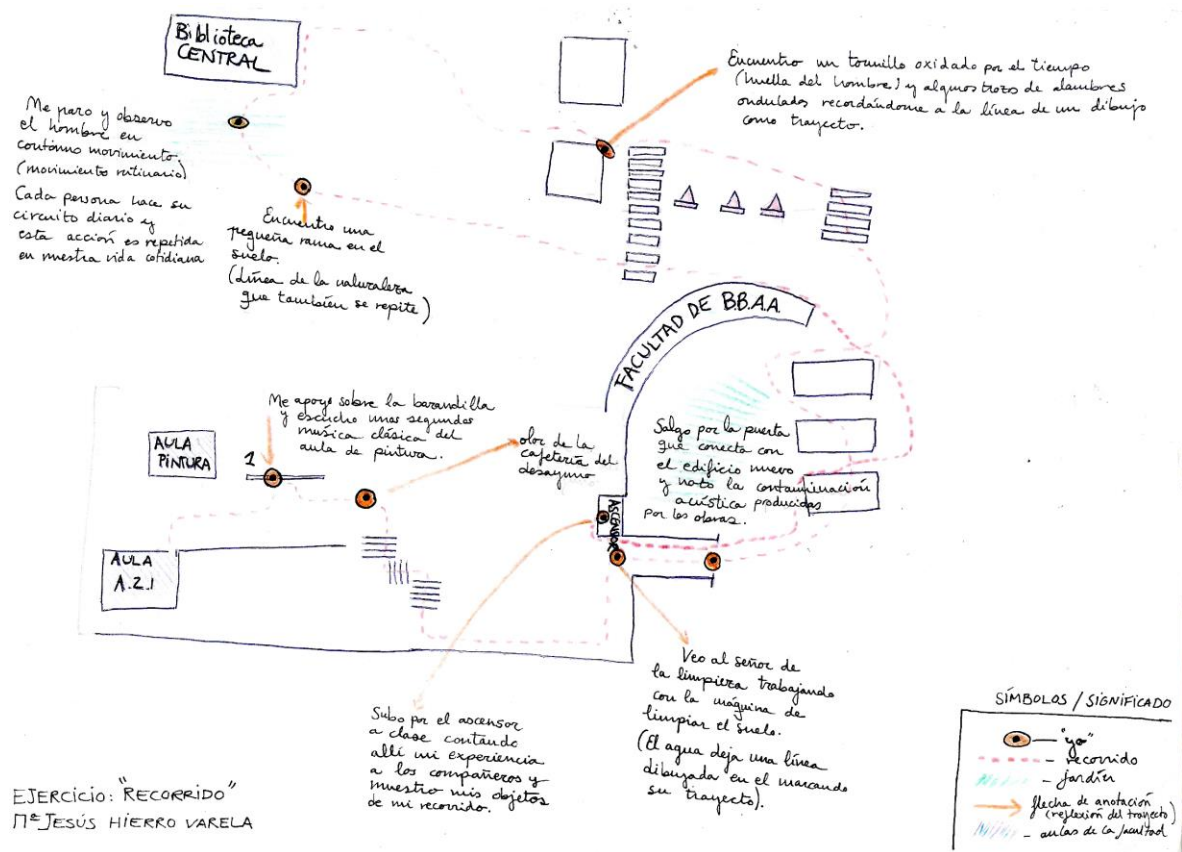 Biblioteca
CENTRAL
Me paro y observo
el hombre en
continuo movimiento.
(movimiento rutinario)
Cada persona hace su
circuito diario y
esta acción es repetida
en nuestra vida cotidiana
Encuentro una
pequeña rama en el
suelo.
(Línea de la naturaleza
que también se repite)
Encuentro un tornillo oxidado por el tiempo
(huella del hombre) y algunos trozos de alambres
ondulados recordándome a la línea de un dibujo
como trayecto.
FACULTAD DE BB.AA.
Me apoyo sobre la barandilla
y escucho unos segundos
musica clásica del
aula de pintura.
AULA
PINTURA
1
olor de la
cafetería del
desayuno
Salgo por la puerta
que conecta con
el edificio nuevo
y noto la contaminación
acústica producidas
por las obras.
ASCENSOR
AULA
A.2.1
Subo por el ascensor
a clase contando
allí mi experiencia
a los compañeros y
muestro mis objetos
de mi recorrido.
Veo al señor de
la limpieza trabajando
con la máquina de
limpiar el suelo.
(El agua deja una línea
dibujada en el marcando
su trayecto).
SÍMBOLOS / SIGNIFICADO
"yo"
- recorrido
- jardín
flecha de anotación
(reflexión del trayecto)
- aulas de la facultad
EJERCICIO: "RECORRIDO"
Mª JESÚS HIERRO VARELA